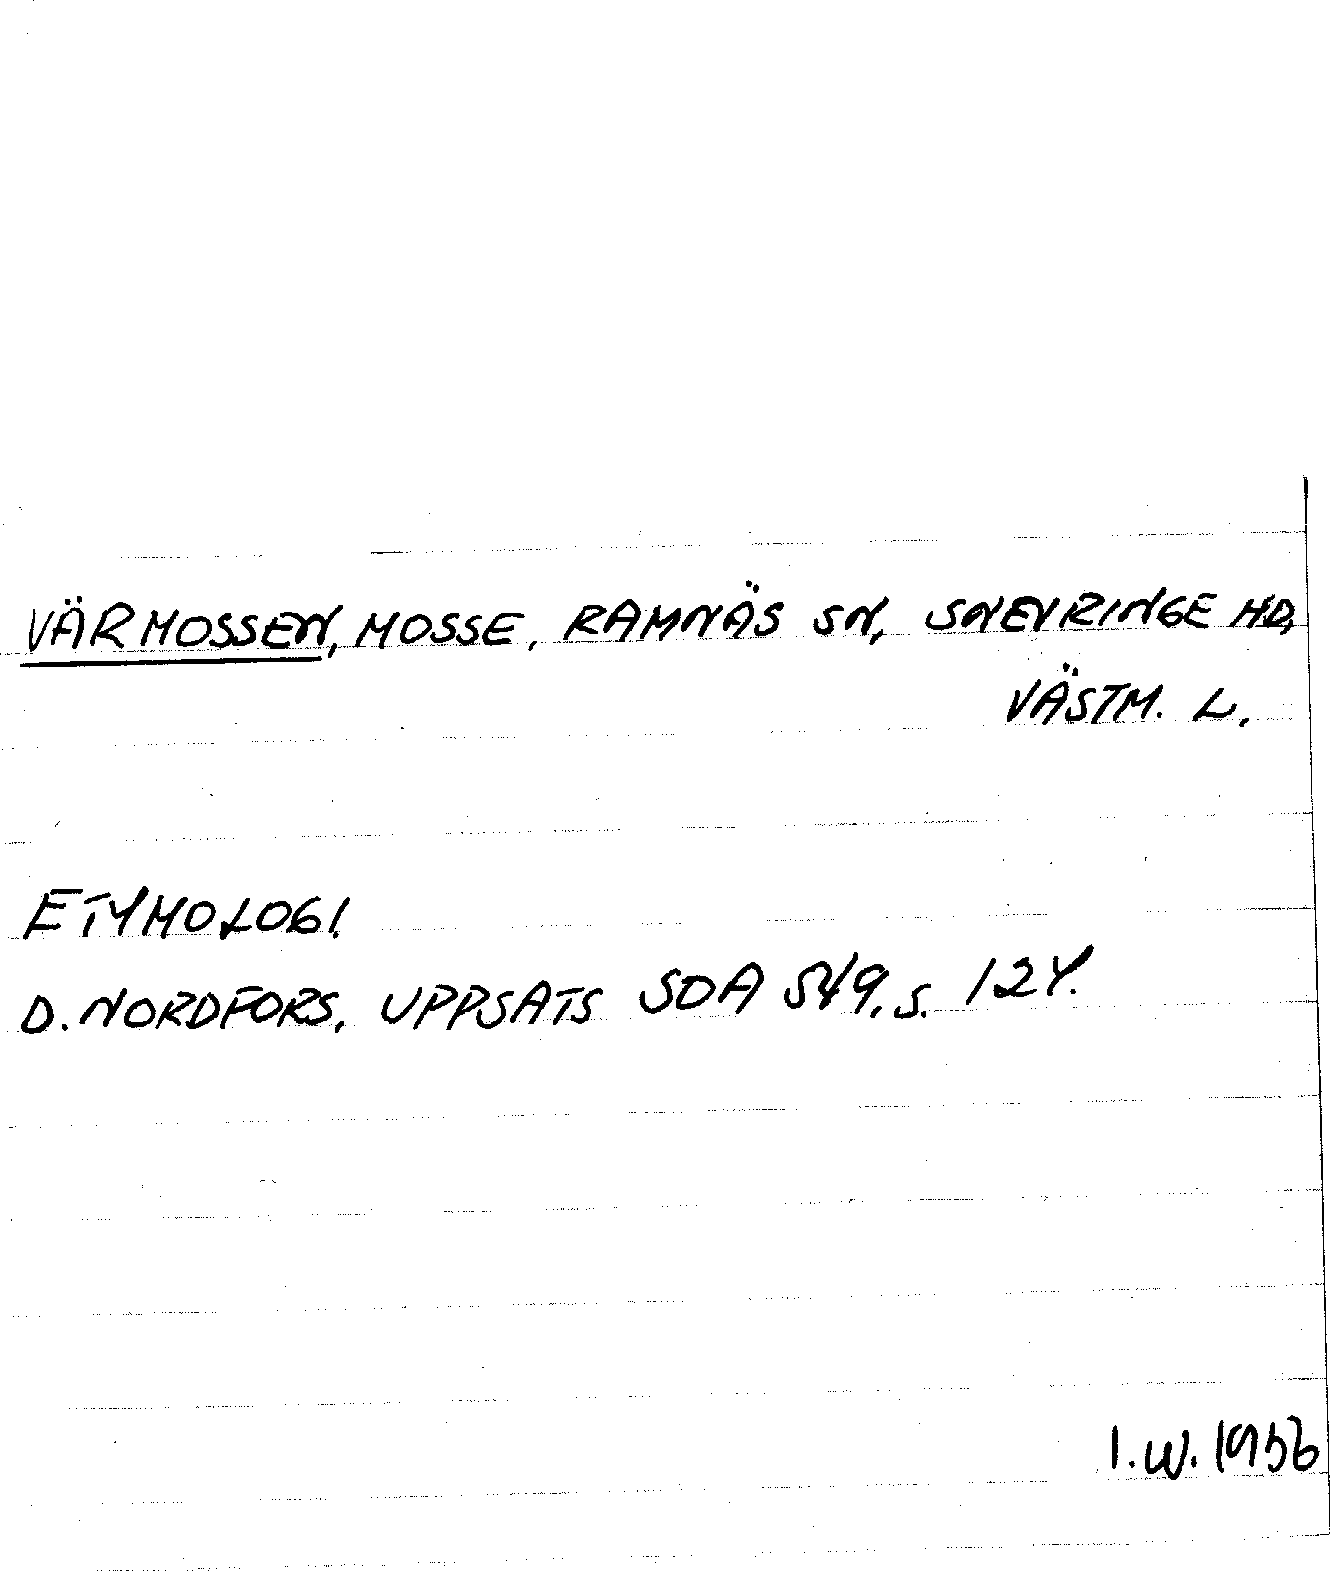 VÄRMOSSEN, MOSSE, RAMNÄS SN, SNEVRINGE HD,
VÄSTM. L.
ETYMOLOGI.
D. NORDFORS, UPPSATS SOA 549, S. 124.
I.W. 1956